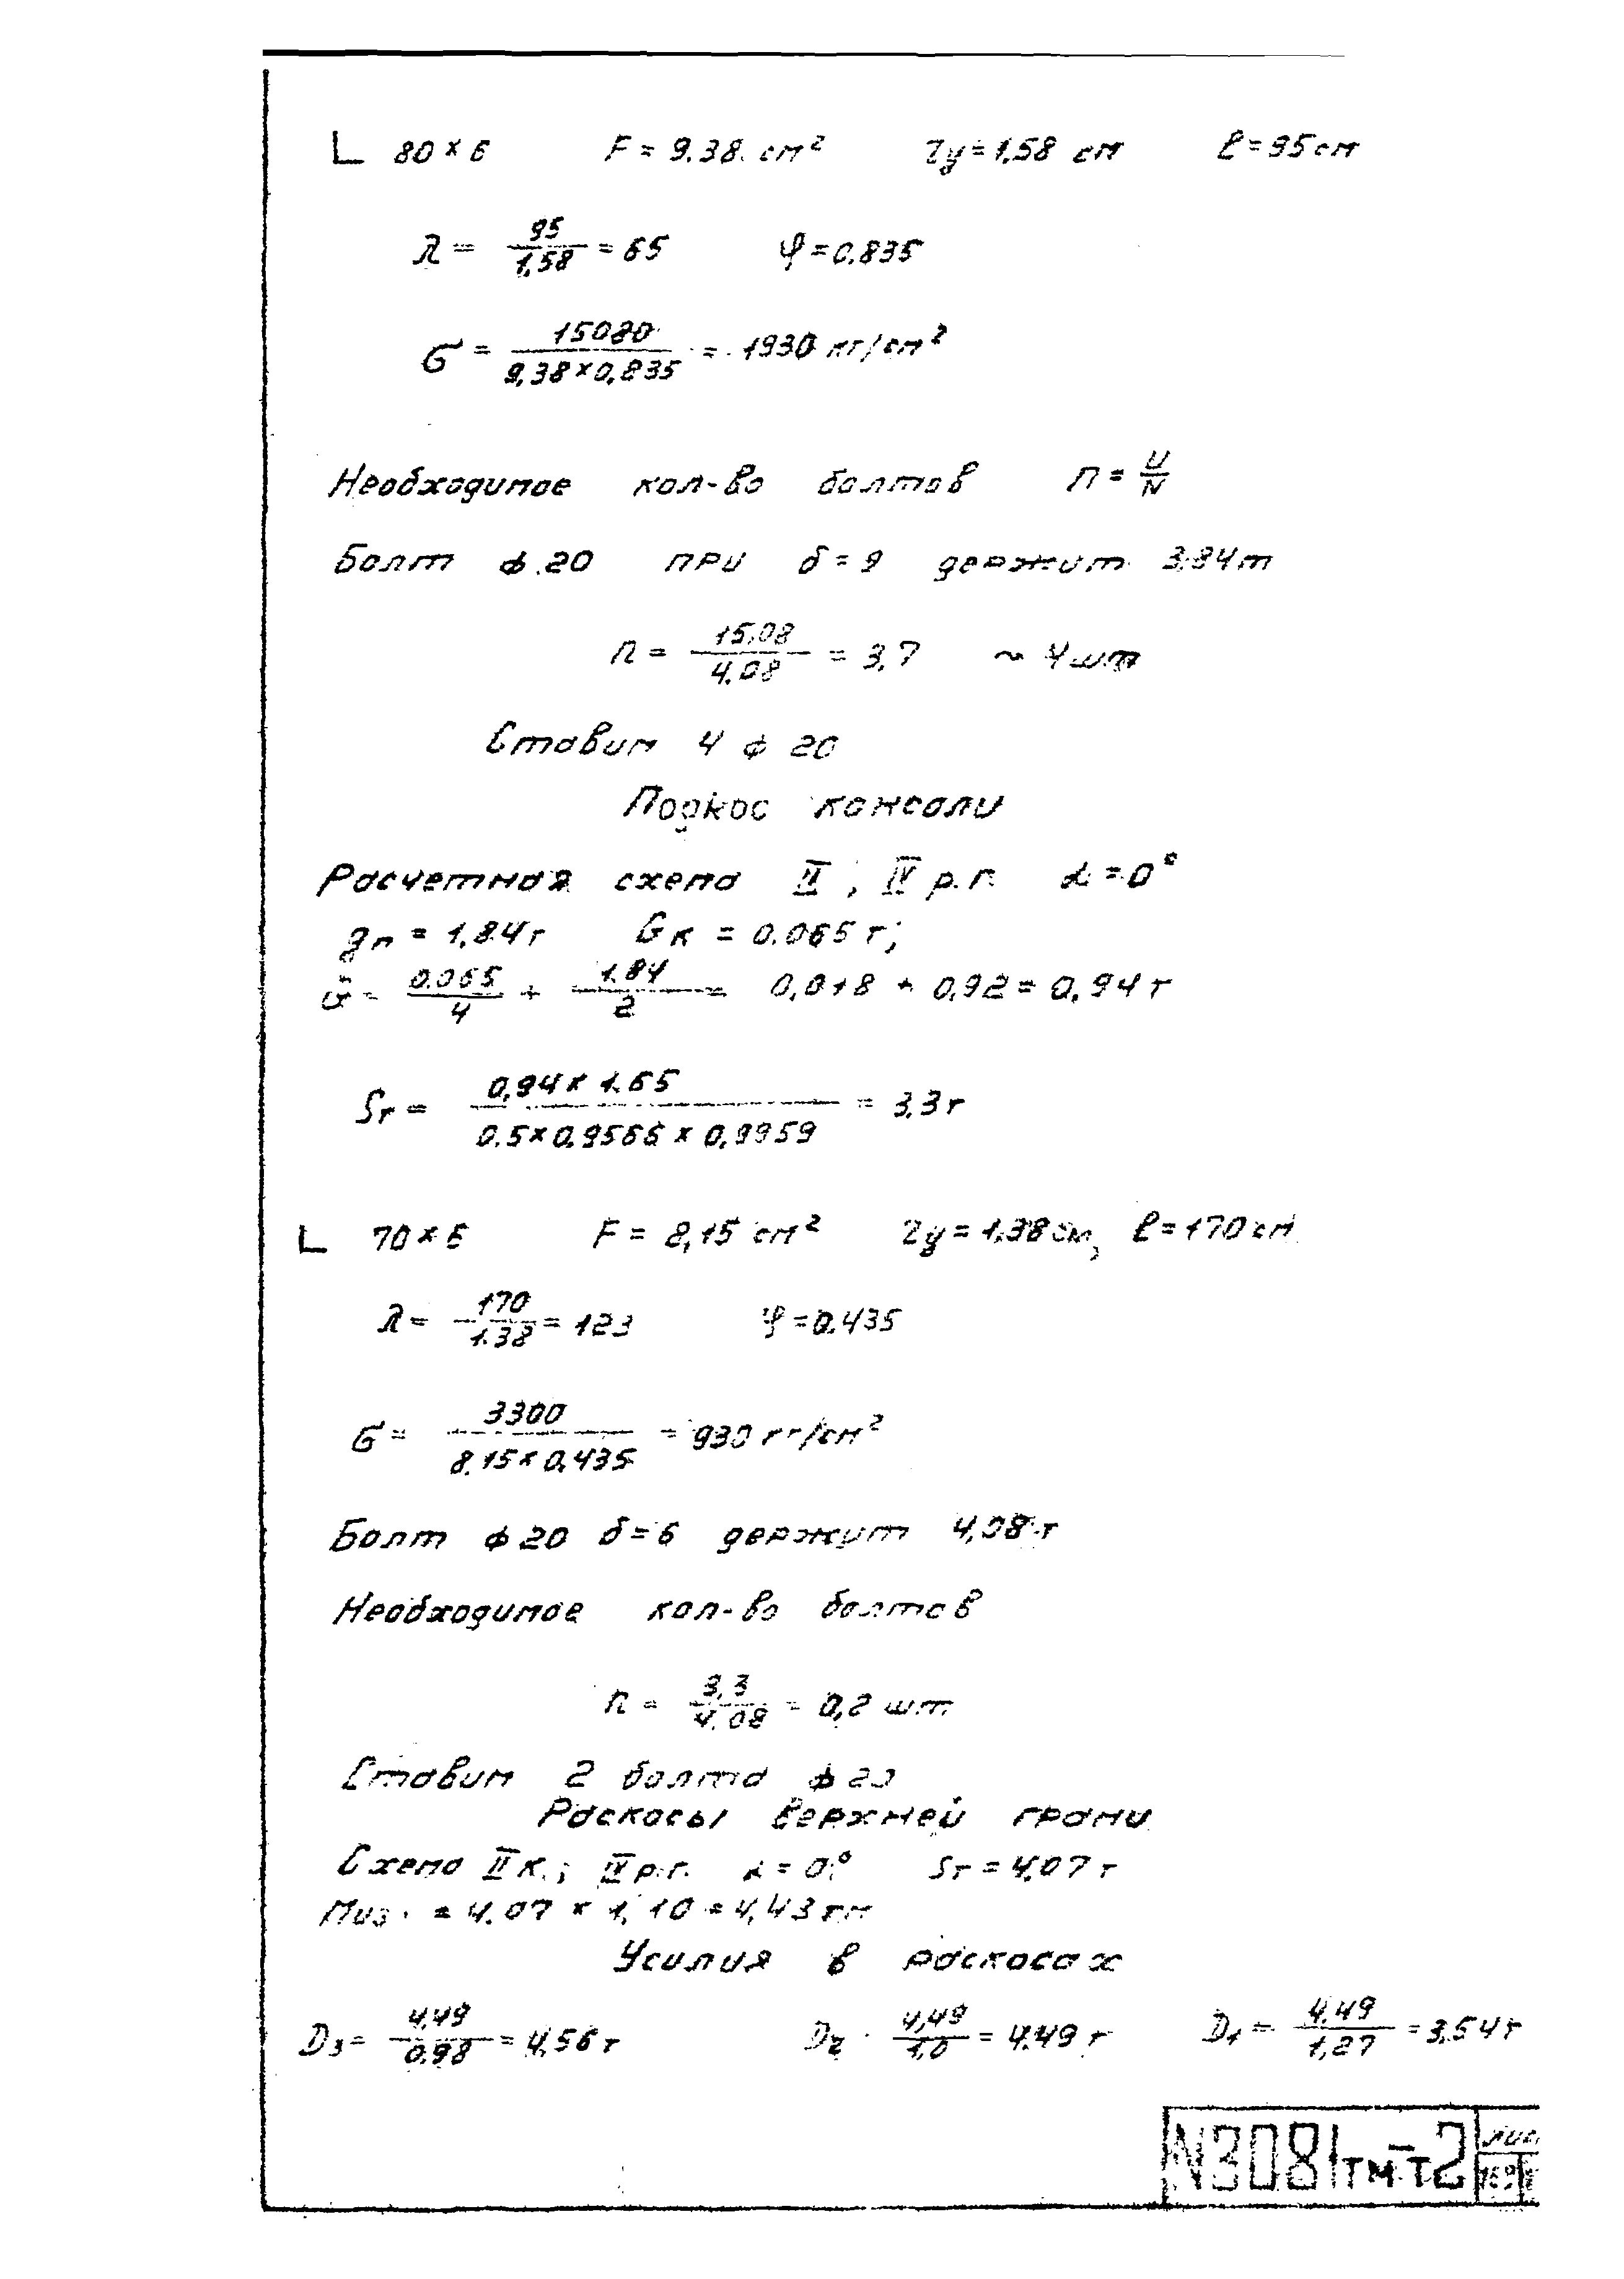 L 80×6 F = 9.38. см² ry = 1,58 см ℓ = 95 см
λ = 95/1,58 = 65 φ = 0.835
σ = 15080/9,38×0,835 = 1930 кг/см²
Необходимое кол-во болтов n = U/N
Болт ф 20 при δ = 9 держит 3,84т
n = 15,08/4,08 = 3,7 ~ 4 шт
Ставим 4 ф 20
Подкос консоли
Расчетная схема II, IV р.г. α = 0°
gп = 1,84т Gк = 0.065 т;
G = 0.065/4 + 1.84/2 = 0,018 + 0,92 = 0,94 т
Sг = 0,94 × 1.65/0.5×0,9566 × 0,9959 = 3,3 т
L 70×6 F = 8,15 см² ry = 1,38 см, ℓ = 170 см
λ = 170/1.38 = 123 φ = 0.435
σ = 3300/8.15×0,435 = 930 кг/см²
Болт ф 20 δ = 6 держит 4,08 т
Необходимое кол-во болтов
n = 3,3/4.08 = 0,2 шт
Ставим 2 болта ф 20
Раскосы верхней грани
Схема II к.; IV р.г. α = 0° Sг = 4,07 т
Mиз. = 4.07 × 1,10 = 4,43 тм
Усилия в раскосах
D3 = 4,49/0,98 = 4,56 т D2 4,49/1,0 = 4.49 т D1 = 4,49/1,27 = 3,54 т
N3081тм-т2